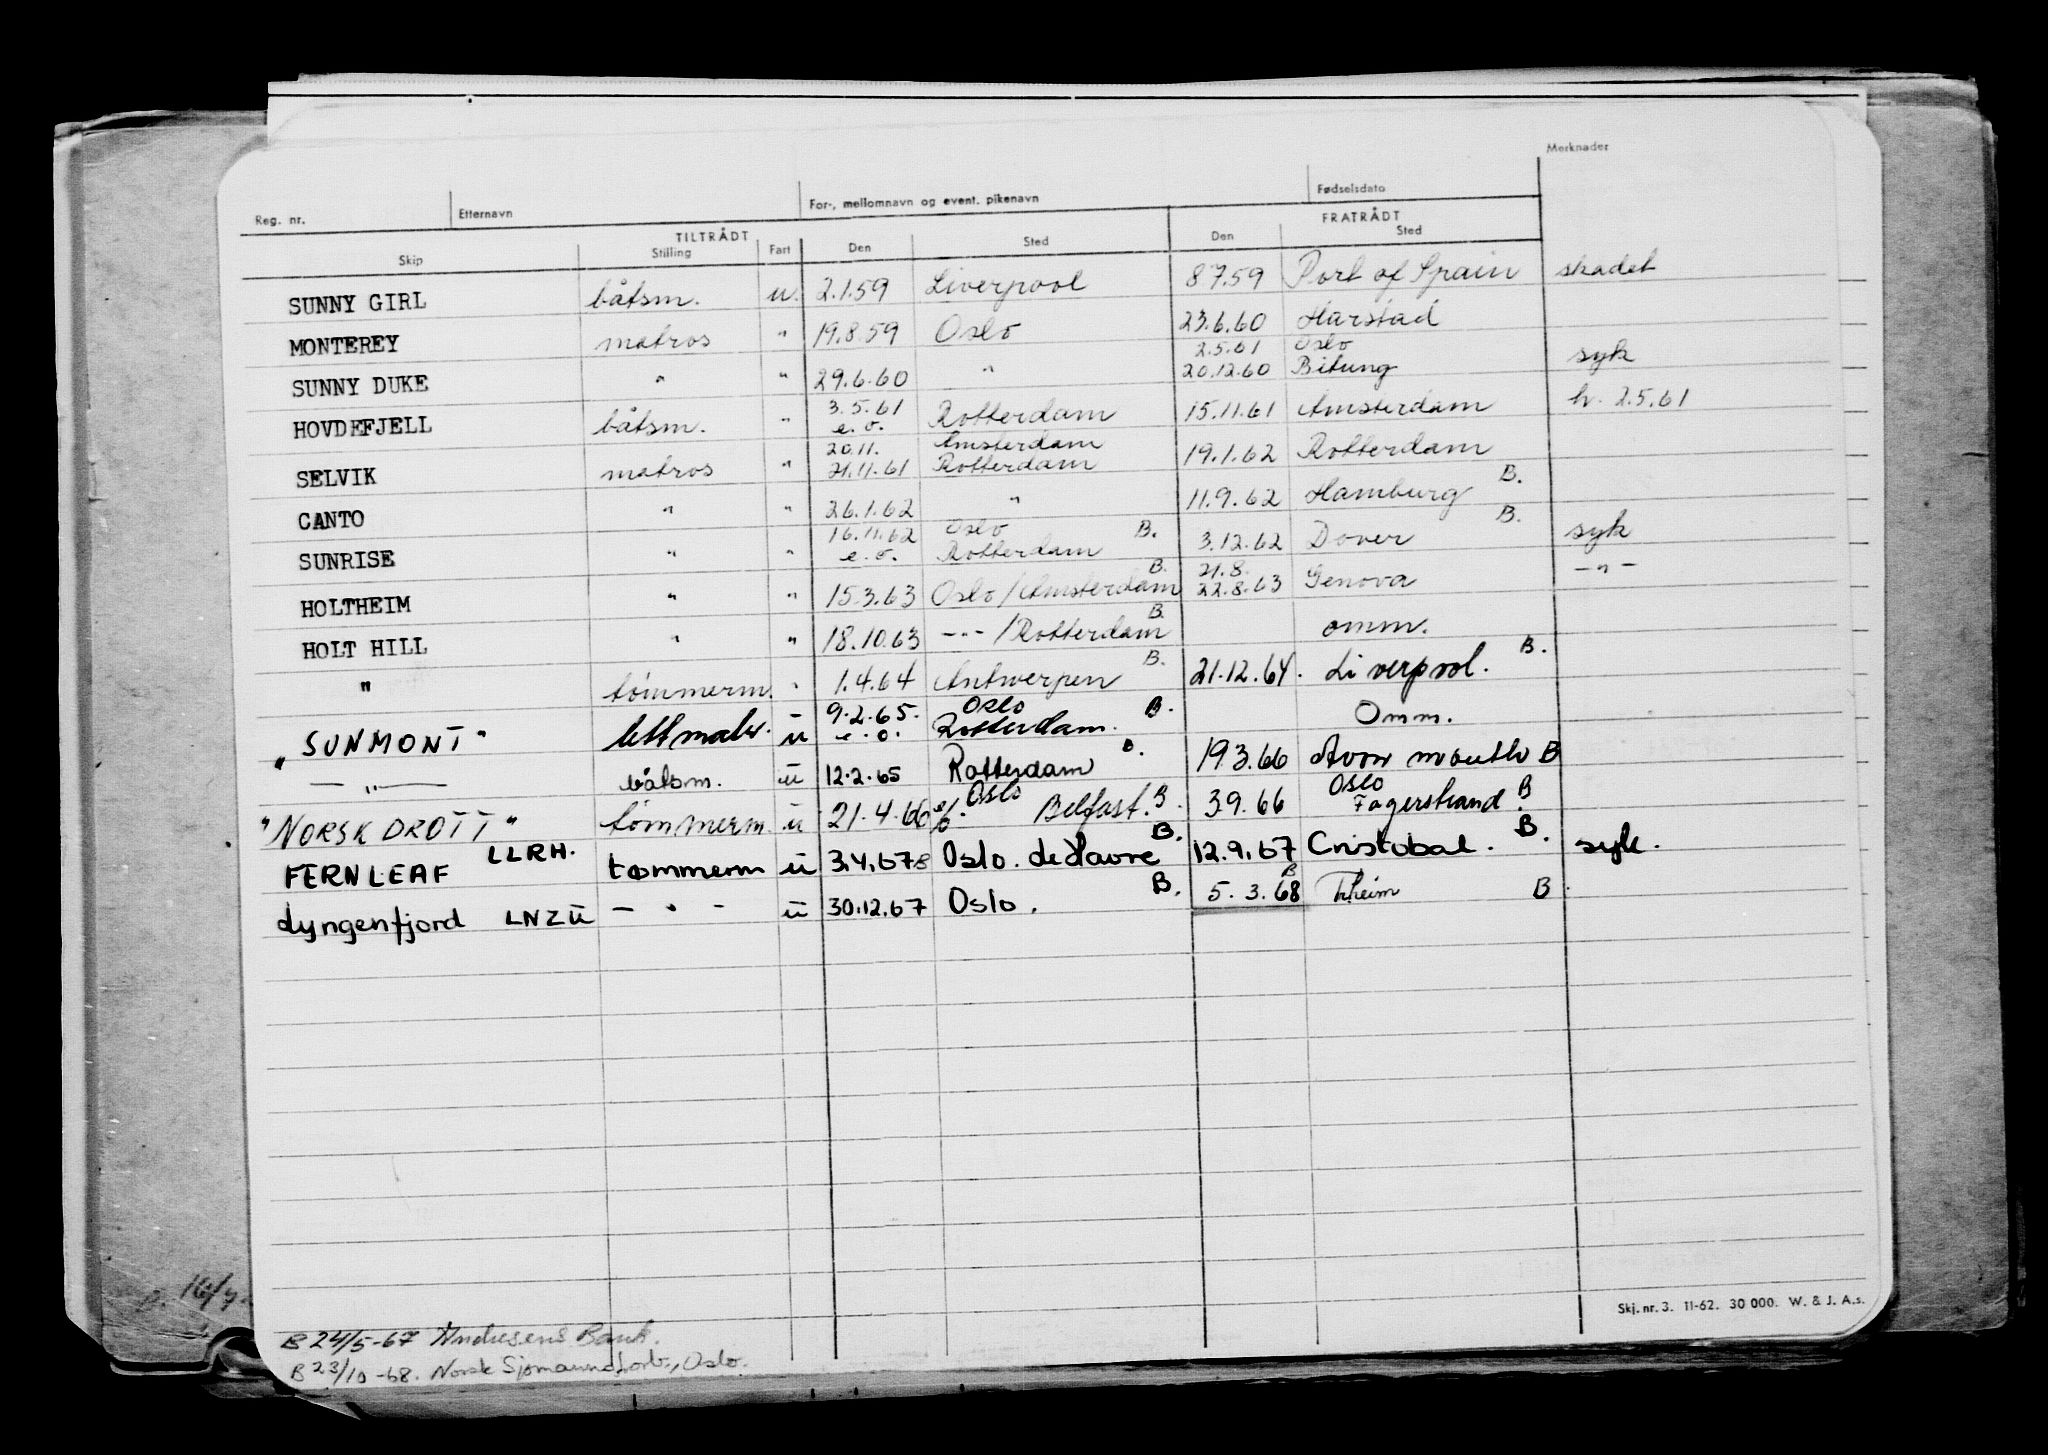 Merknader
Reg. nr. Etternavn For-, mellomnavn og event. pikenavn Fødselsdato
TILTRÅDT FRATRÅDT
Skip Stilling Fart Den Sted Den Sted
SUNNY GIRL båtsm. u. 2.1.59 Liverpool 8.7.59 Port of Spain skadet
MONTEREY matros " 19.8.59 Oslo 23.6.60 Harstad
2.5.61 Oslo
SUNNY DUKE " " 29.6.60 " 20.12.60 Bitung syk
3.5.61
HOVDEFJELL båtsm. " e.o. Rotterdam 15.11.61 Amsterdam h. 2.5.61
20.11. Amsterdam
SELVIK matros " 21.11.61 Rotterdam 19.1.62 Rotterdam
CANTO " " 26.1.62 " 11.9.62 Hamburg B.
16.11.62 Oslo B.
SUNRISE " " e.o. Rotterdam 3.12.62 Dover B. syk
B. 21.8.
HOLTHEIM " " 15.3.63 Oslo/Amsterdam 22.8.63 Genova -"-
HOLT HILL " " 18.10.63 -"- /Rotterdam B. omm.
" tømmerm. " 1.4.64 Antwerpen B. 21.12.64. Liverpool. B.
9.2.65. Oslo
"SUNMONT" lettmatr. u e.o. Rotterdam. B. Omm.
— " — båtsm. u 12.2.65 Rotterdam B. 19.3.66 Avonmouth B
Oslo Oslo
"NORSK DROTT" tømmerm. u 21.4.66 e/o. Belfast. B. 3.9.66 Fagerstrand B.
FERNLEAF LLRH. tømmerm u 3.4.67 B Oslo. de Havre B. 12.9.67 Cristobal. B. syk.
Lyngenfjord LNZU - " - u 30.12.67 Oslo. B. 5.3.68 B Trheim B
Skj. nr. 3. 11-62. 30 000. W. & J. A.s.
B 24/5-67 Andresens Bank.
B 23/10-68. Norsk Sjømannsforb., Oslo.